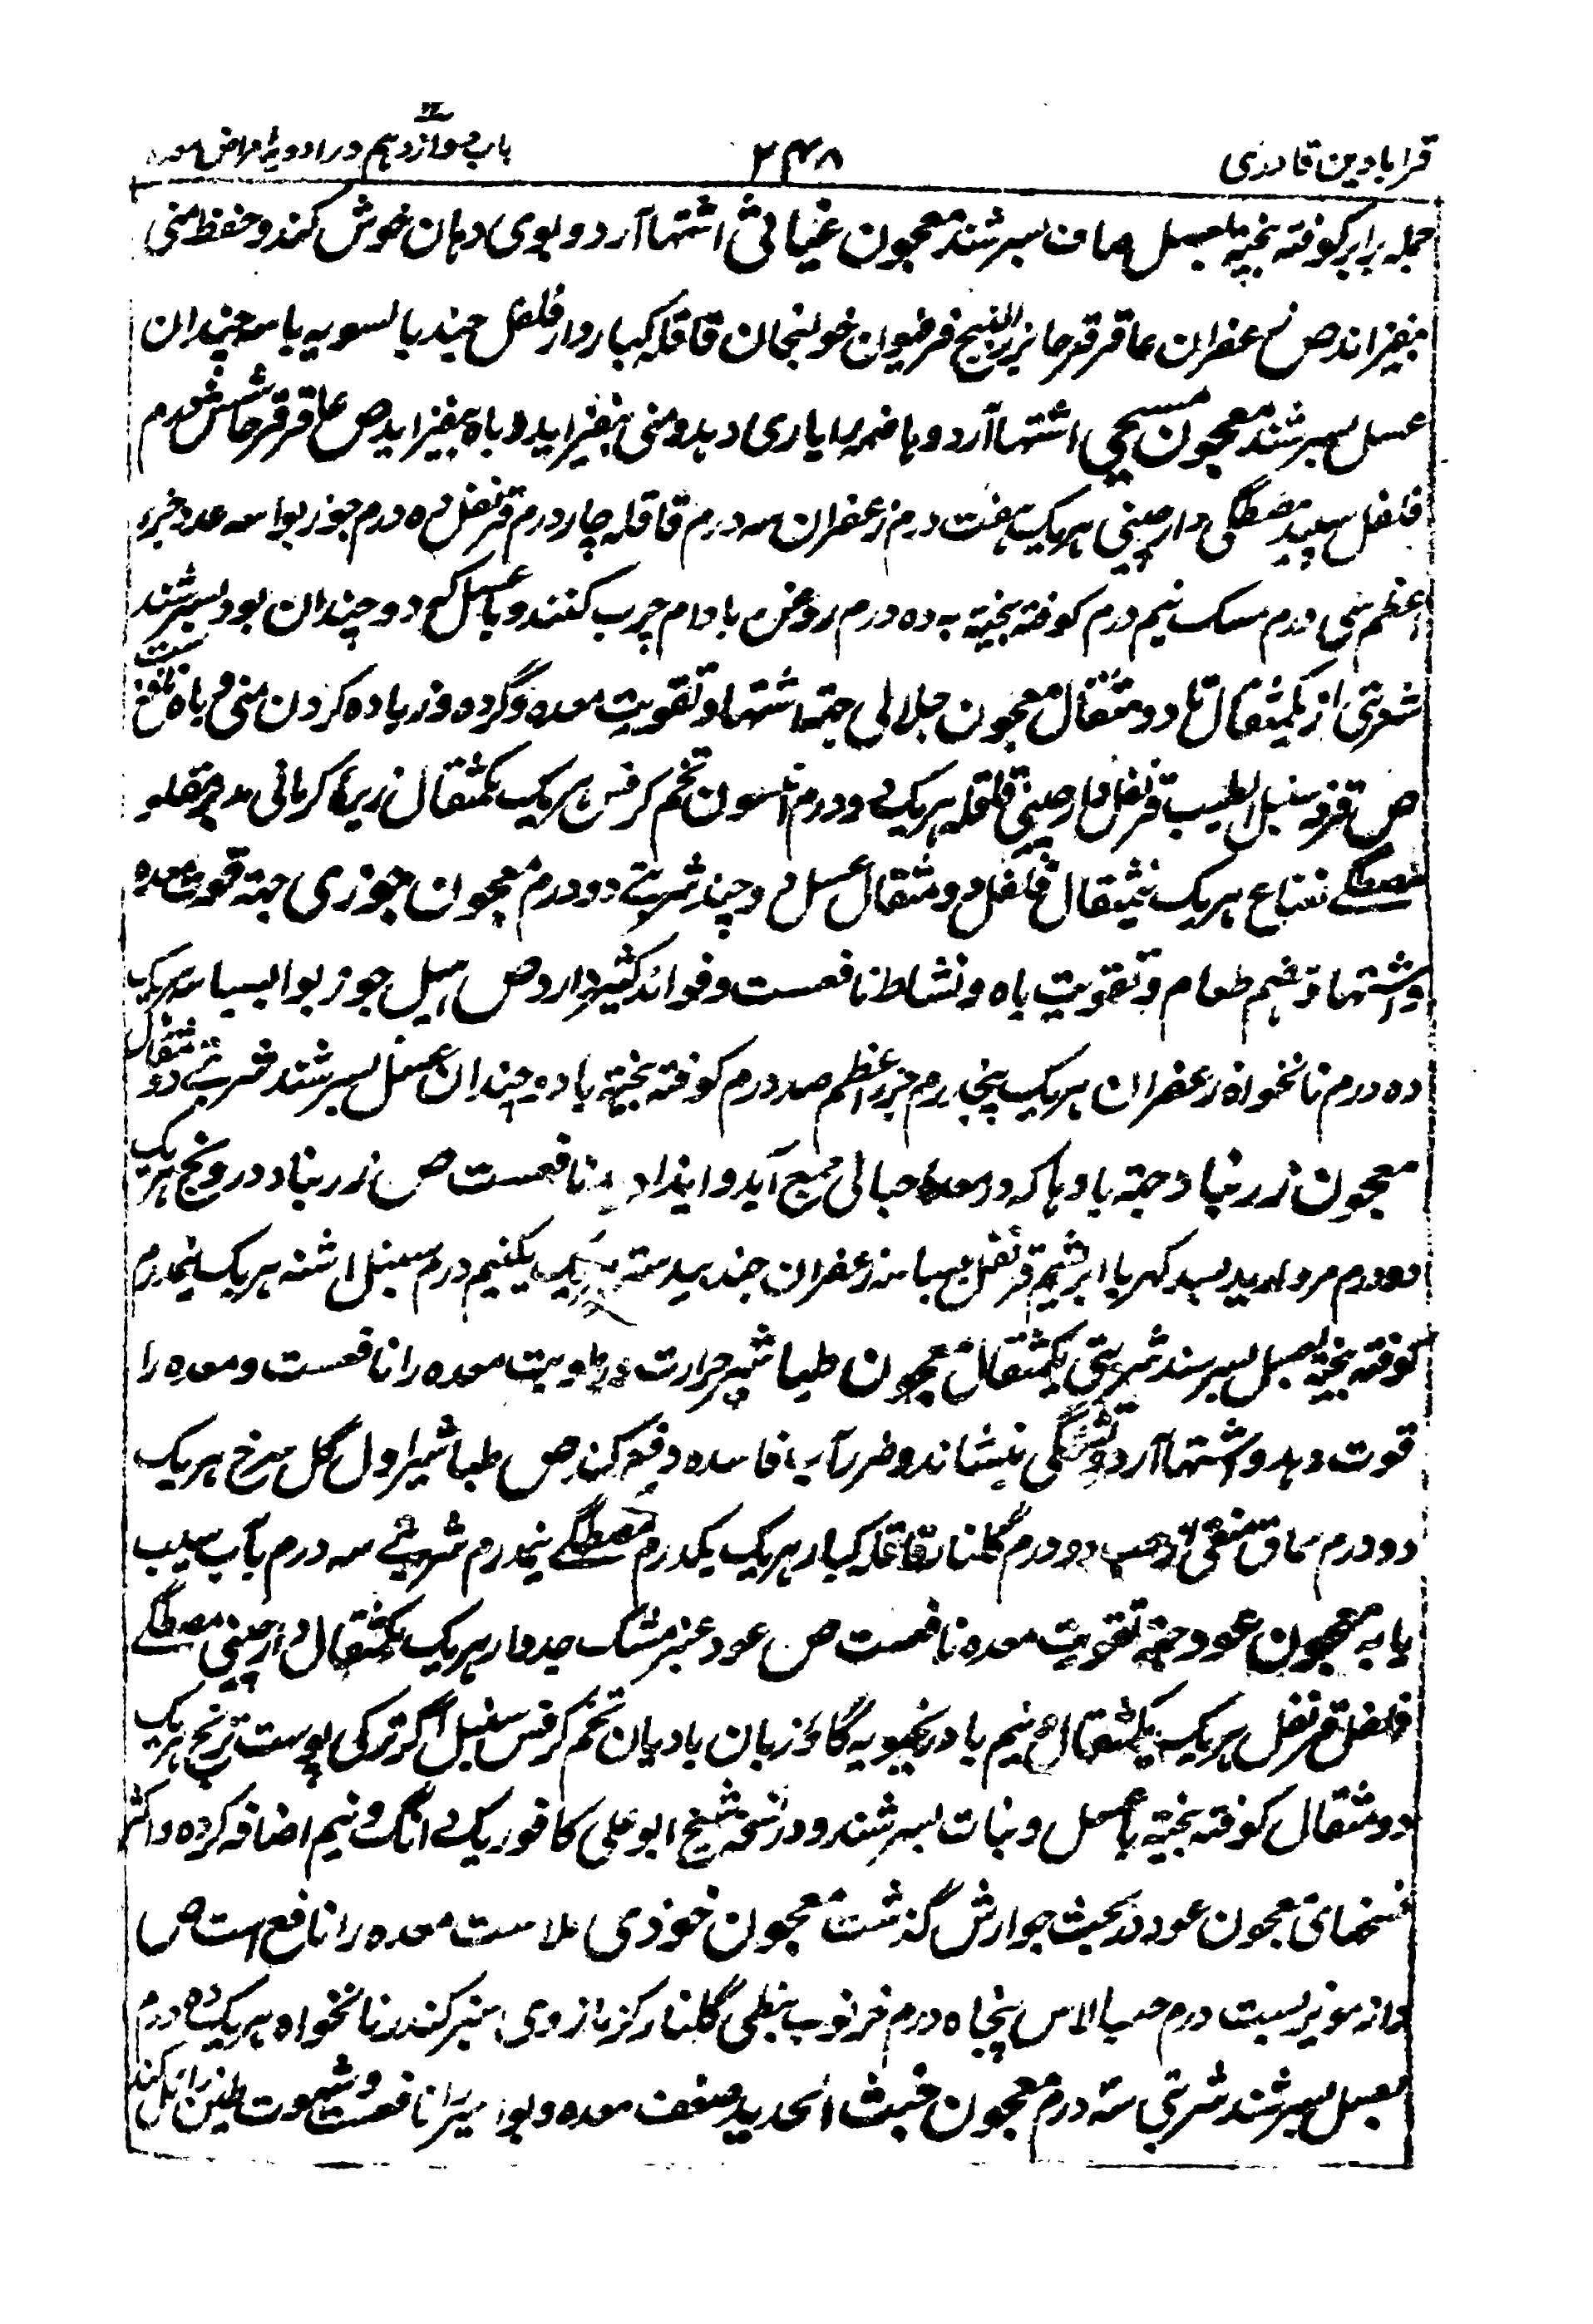 قرابادین قادری
۲۴۸
باب دوازدهم در ادویه امراض معده
جمله برابر کوفته بیخته بعسل صاف بسرشند معجون غیاثی اشتها آرد و بوی دهان خوش کند و حفظ منی
بیفزاند ص زعفران عاقرقرحا بزرالبنج فرفیون خولنجان قاقله کبار دارفلفل جند بالسویه با سه چندان
عسل بسرشند معجون مسیحی اشتها آرد و هاضمه را یاری دهد و منی بیفزاید و باه بیفزاید ص عاقرقرحا شش درم
فلفل سپید مصطگی دارچینی هریک هفت درم زعفران سه درم قاقله چار درم قرنفل ده درم جوزبوا سه عدد جزر
اعظم سی درم مسک نیم درم کوفته بیخته به ده درم روغن بادام چرب کنند و با عسل که دو چندان بود بسرشند
شربتی از یکمثقال تا دو مثقال معجون جلالی جهة اشتها و تقویت معده و گرده و زیاده کردن منی و باه نافع ست
ص قرفه سنبل الطیب قرنفل دارچینی قاقله هریک دو درم انیسون تخم کرفس هریک یکمثقال زیرۀ کرمانی مدبر مقلو
مصطگے نعناع هریک نیمثقال فلفل دو مثقال عسل دو چند شربتے دو درم معجون جوزی جهة قوت معده
و اشتها و هضم طعام و تقویت باه و نشاط نافعست و فوائد کثیر دارد ص هیل جوزبوا بسباسه هریک
ده درم نانخواه زعفران هریک پنجدرم جزر اعظم صد درم کوفته بیخته با ده چندان عسل بسرشند شربتے دو مثقال
معجون زرنباد جهة بادها که در معده حبالی مجتمع آید و ایذا دهد نافعست ص زرنباد درونج هریک
دو درم مروارید بسد کهربا ابریشم قرنفل بهمنانه زعفران جندبیدستر هریک یکنیم درم سنبل اشنه هریک نیمدرم
کوفته بیخته بعسل بسرشند شربتی یکمثقال معجون طباشیر حرارت و رطوبت معده را نافعست و معده را
قوت دهد و اشتها آرد و تشنگی بنشاند و طراآب فاسده دفع کند ص طباشیر اول گل سرخ هریک
دو درم سماق منقی از حب دو درم گلنار قاقله کبار هریک یکدرم مصطگے نیمدرم شربتے سه درم بآب سیب
یا به معجون عود جهة تقویت معده نافعست ص عود عنبر مشک جدوار هریک یکمثقال دارچینی مصطگے
فلفل قرنفل هریک یکمثقال و نیم بادرنجبویه گاوزبان بادیان تخم کرفس سنبل اگر ترکی پوست ترنج هریک
دو مثقال کوفته بیخته با عسل و نبات بسرشند و در نسخه شیخ ابوعلی کافور یک دانگ و نیم اضافه کرده و اکثر
نسخهای معجون عود در بحث جوارش گذشت معجون خوذی ملاست معده را نافع است ص
دانه مویز بیست درم حب الاس پنجاه درم خرنوب نبطی گلنار کزمازوی سبز کندر نانخواه هریک ده درم
بعسل بسرشند شربتی سه درم معجون خبث الحدید ضعف معده و بواسیر را نافعست و شهوت طین زائل کند